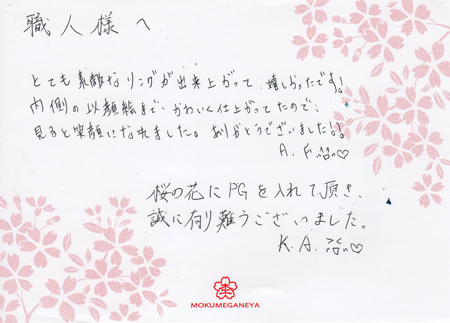 職人様へ
とても素敵なリングが出来上がって、嬉しかったです!
内側の似顔絵まで、かわいく仕上がってたので、
見ると笑顔になれました。ありがとうございました!!
A. F
桜の花にPGを入れて頂き、
誠に有り難うございました。
K. A.
MOKUMEGANEYA